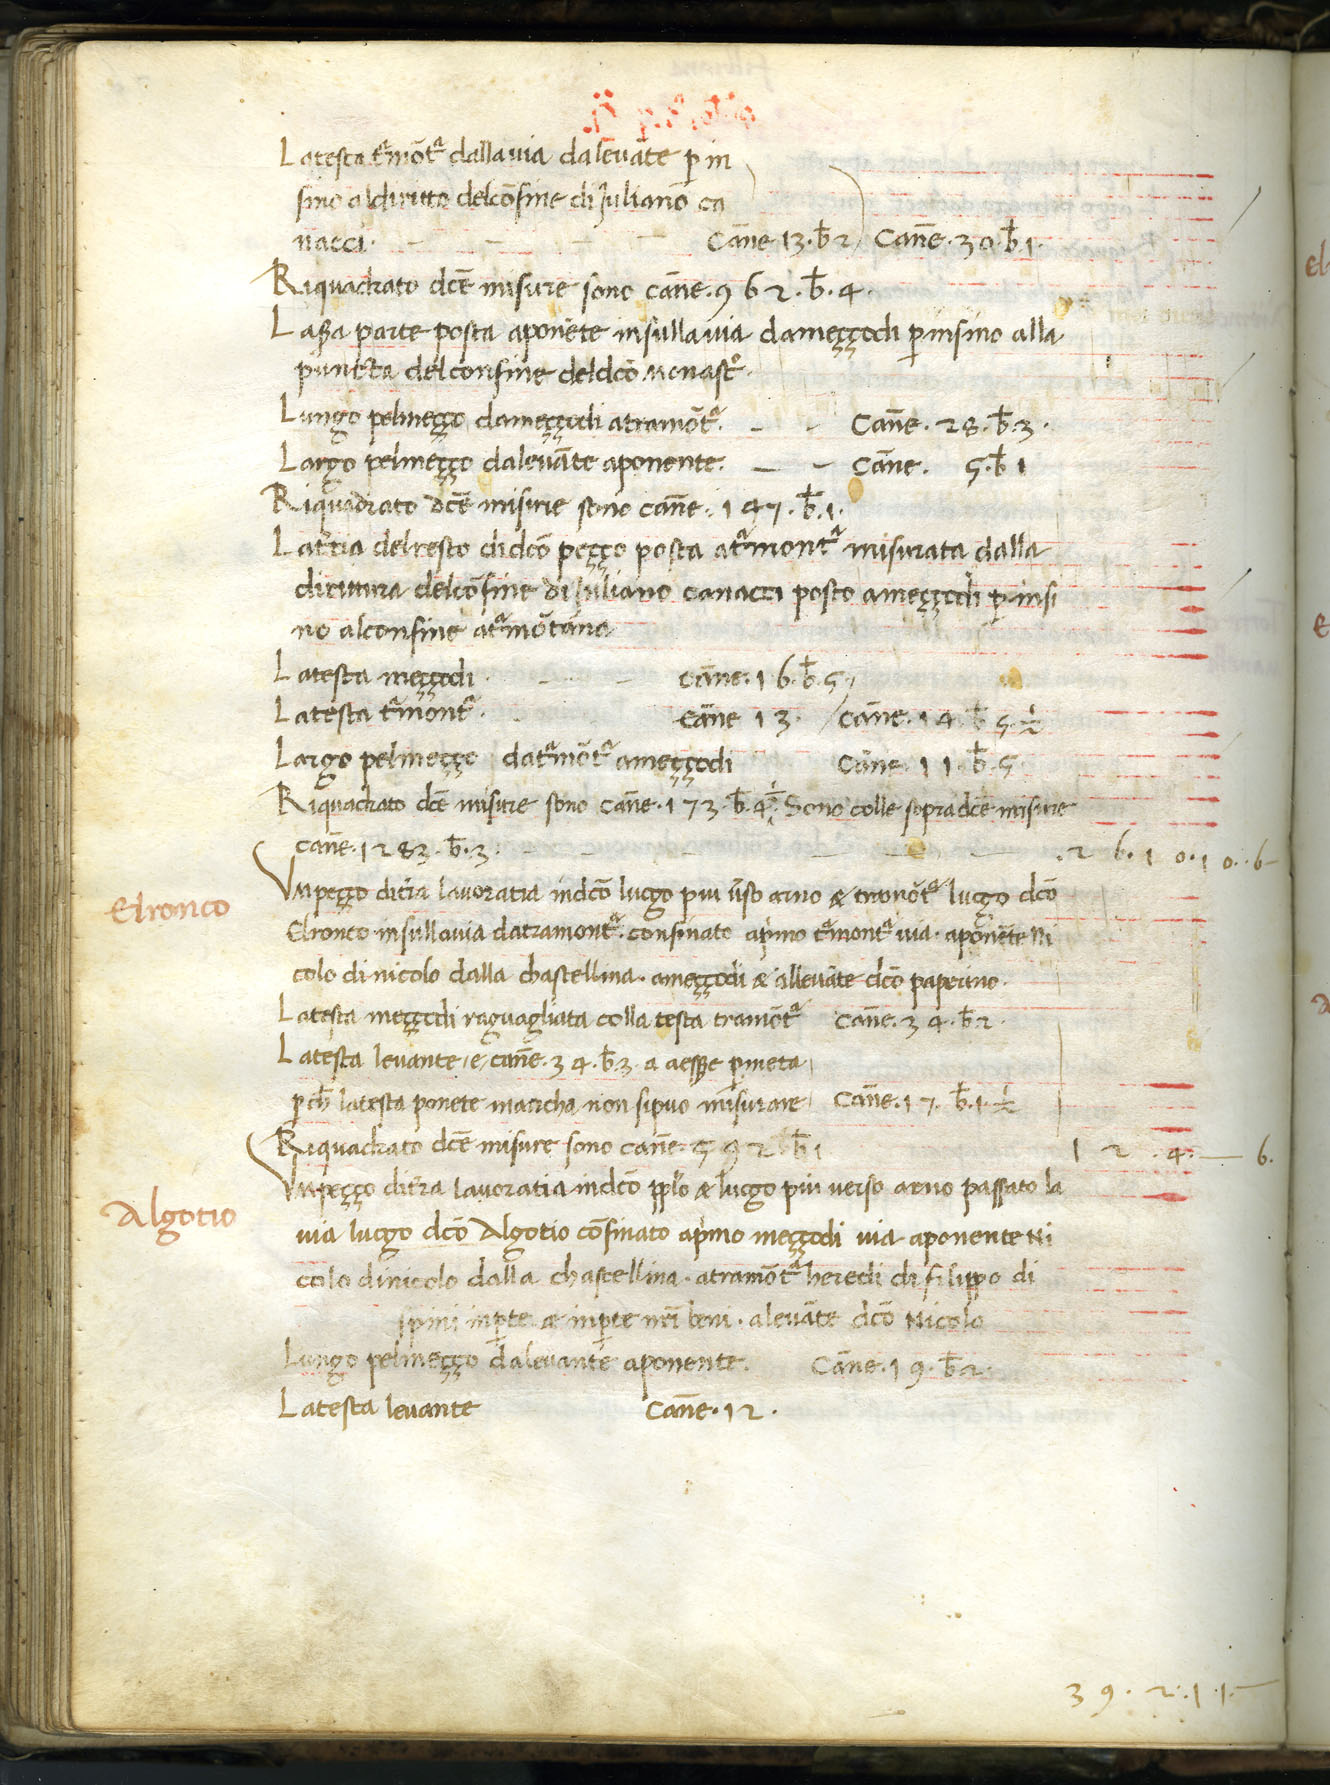 Latesta tr̃mõtª dallauia daleuãte p̱ in
sino aldiritto delcõfine di Juliano ca
nacci · Cañe 13 · b̃ 2 Cañe · 30 · b̃ 1 ·
Riquadrato dcẽ misure sono cañe · 962 · b̃ · 4 ·
parte posta aponẽte insullauia dameççodi p̱insino alla
puntta delconfine deldcõ monastº ·
Lungo pelmeçço dameççodi atramõtª · Cañe · 28 · b̃ · 3 ·
Largo pelmeçço daleuãte aponente · Cañe · 5 · b̃ 1
Riquadrato dcẽ misure sono cañe · 147 · b̃ · 1 ·
delresto didcõ peçço posta atªmontª misurata dalla
dirittura delcõfine di Juliano canacci posto ameççodi p̱ insi
no alconfine atªmõtana
Latesta meççodi · Cañe · 16 · b̃ · 5 ·
Latesta tªmontª · Cañe 13 · Cañe · 14 · b̃ 5 · ½
Largo pelmeçço datªmõtª ameççodi Cañe · 11 · b̃ · 5 ·
Riquadrato dcẽ misure sono cañe · 173 · b̃ · 4 ½ · Sono colle sopradcẽ misure
cañe · 1283 · b̃ · 3 · · 2 6 · 1 0 · 1 0 · · 6
Elronco
Vnpeçço ditr̃a lauoratia indcõ luogo piu ũso arno & tramõtª luogo dcõ
Elronco insullauia datramontª · confinato aprimo tªmontª uia · aponẽte Ni
colo di nicolo dalla chastellina · ameççodi & alleuãte dcõ paperino ·
Latesta meççodi raguagliata colla testa tramõtª Cañe · 34 · b̃ 2 ·
Latesta leuante · e · cañe · 34 · b̃ · 3 · a aesse p̱ meta
p̱ch̃ latesta ponẽte maticha non sipuo misurare Cañe · 17 · b̃ · 1 · ½
Riquadrato dcẽ misure sono cañe · 592 b̃ 1 1 2 · 4 · — 6 ·
Algotio
Vnpeçço ditr̃a lauoratia indcõ pplõ & luogo piu uerso arno passato la
uia luogo dcõ Algotio cõfinato aprimo meççodi uia aponente Ni
colo dinicolo dalla chastellina · atramõtª heredi di filippo di
spini inp̱te & inp̱te nrĩ beni · aleuãte dcõ Nicolo
Lungo pelmeçço daleuante aponente · Cañe · 19 · b̃ 2 ·
Latesta leuante Cañe · 12 ·
39 · 2 · 11 ·